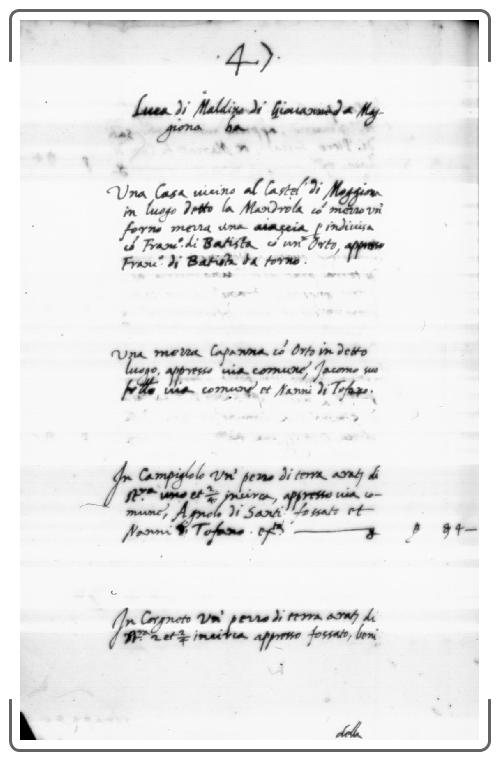 47.
Luca di Maldino di Giovanni da Mog-
giona ha
Una Casa vicino al Castel di Moggiona
in luogo detto la Mandrola cō mezzo un
forno mezza una aiaccia indivisa
cō Franc.o di Batista cō un Orto, appresso
Franc.o di Batista da torno.
Una mezza Capanna cō Orto in detto
luogo, appresso via comune, Jacomo suo
fratello via comune et Nanni di Tofano.
In Campiglolo un pezzo di terra di
uno et incirca, appresso via co-
mune, Agnolo di Santi fossato et
Nanni di Tofano.
In Corgneto un pezzo di terra di
2 et incirca appresso fossato, beni
della